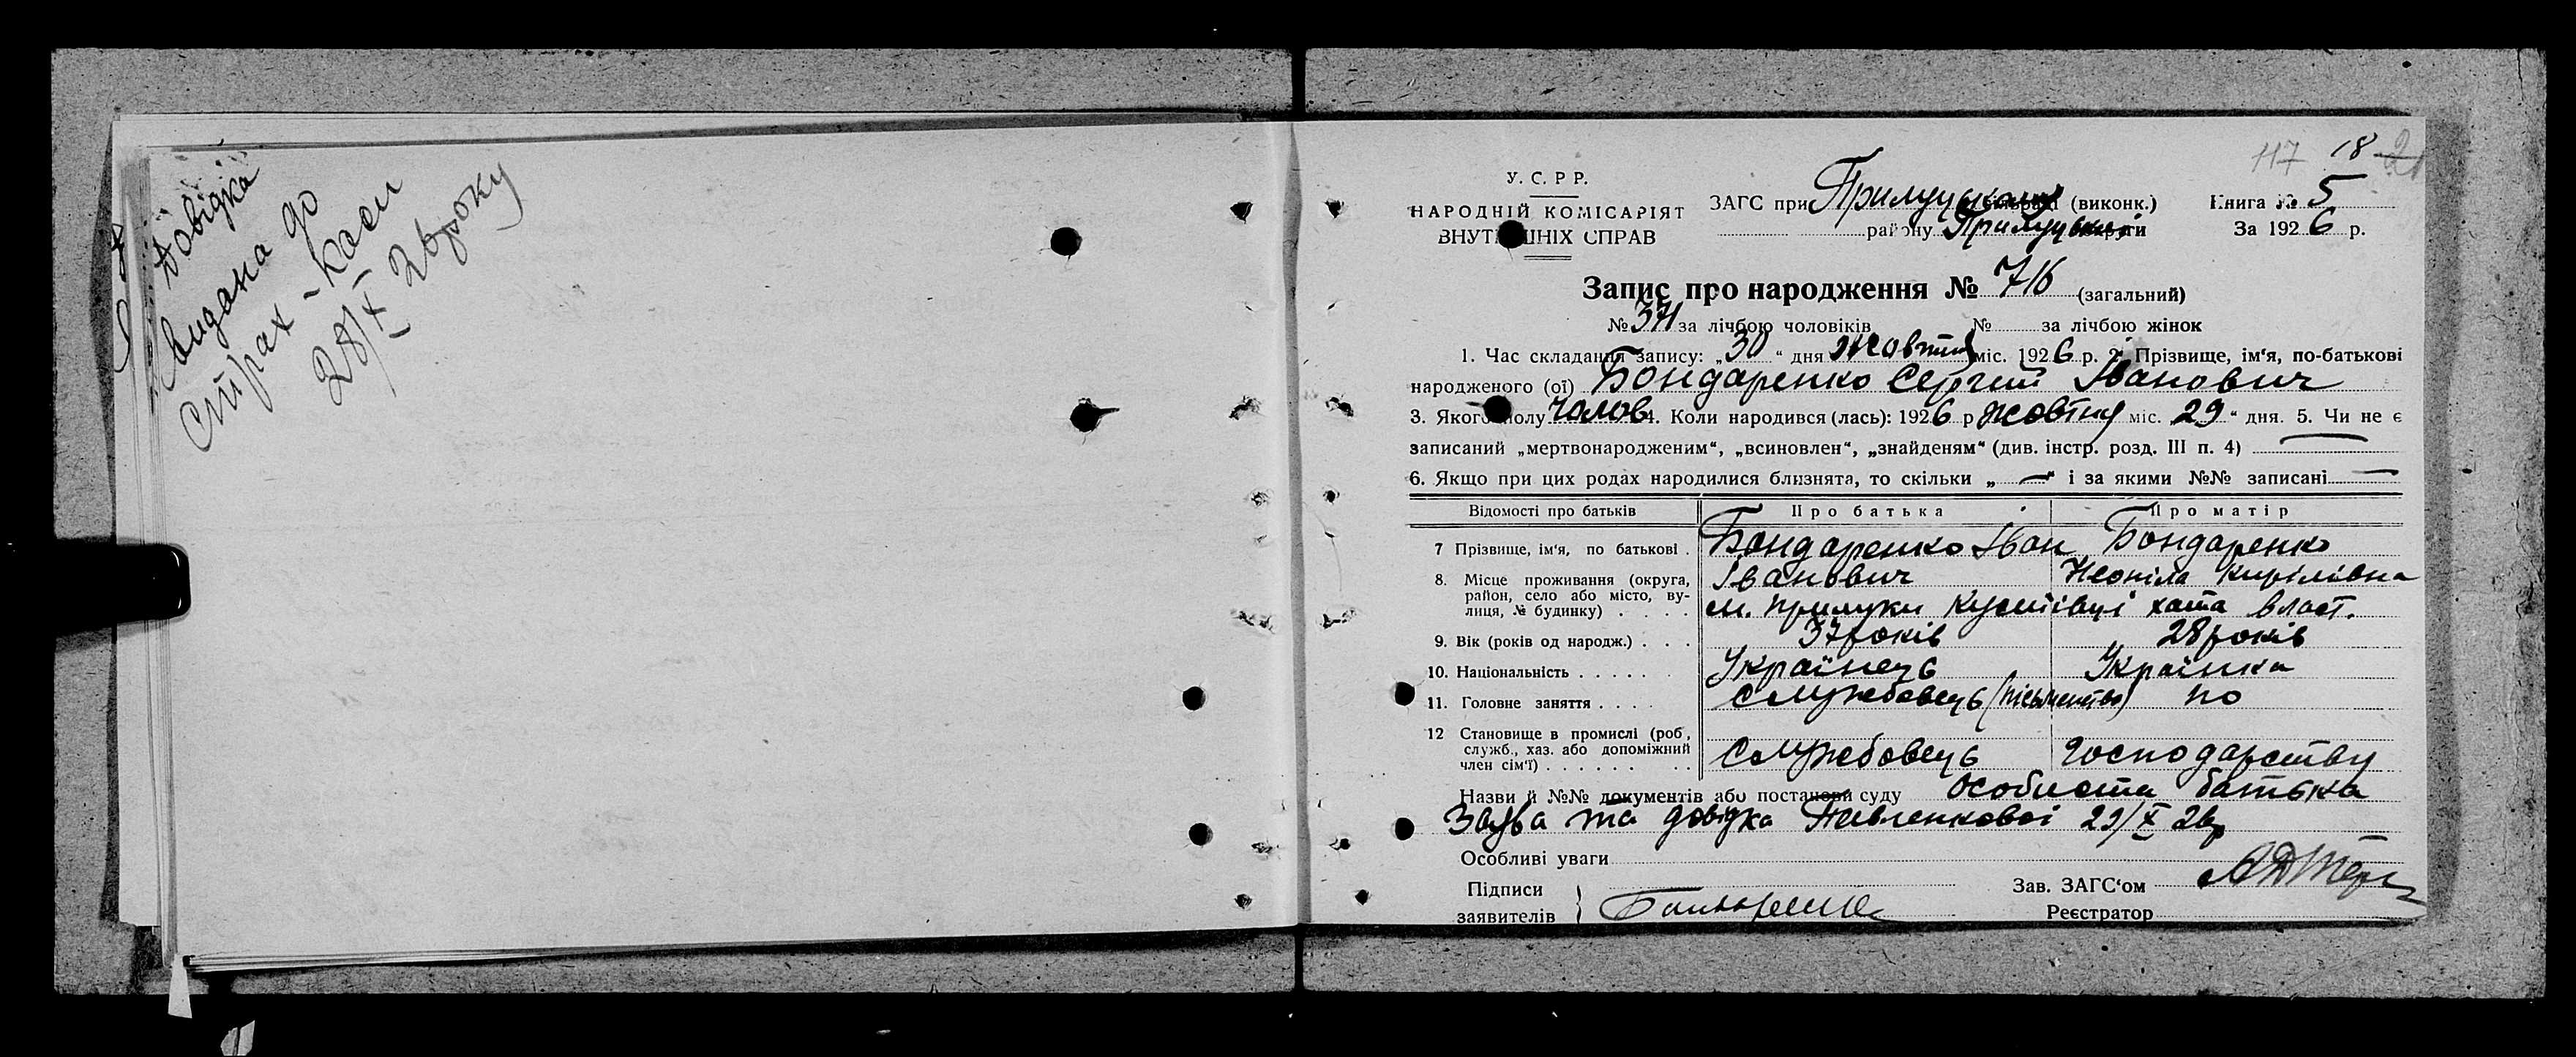 Довідка
видана до
страх-каси
28/X 26 року
117 18 21
У. С. Р Р.
НАРОДНІЙ КОМІСАРІЯТ
ВНУТРІШНІХ СПРАВ
ЗАГС при Прилуцькому (виконк.)
району Прилуцької округи
Книга № 5
За 1926 р.
Запис про народження № 716 (загальний)
№ 371 за лічбою чоловіків № за лічбою жінок
1. Час складання запису: „30" дня жовтня міс. 1926 р. 2. Прізвище, ім'я, по-батькові
народженого (ої) Бондаренко Сергій Іванович
3. Якого полу Чолов 4. Коли народився (лась): 1926 р жовтня міс. „29" дня. 5. Чи не є
записаний „мертвонародженим", „всиновлен", „знайденям" (див. інстр. розд. III п. 4) —
6. Якщо при цих родах народилися близнята, то скільки „—" і за якими №№ записані —
Відомості про батьків Про батька Про матір
7 Прізвище, ім'я, по батькові . Бондаренко Іван Бондаренко
Іванович Неоніла Кирілівна
8. Місце проживання (округа, район, село або місто, вулиця, № будинку) . . . . м. Прилуки Кустівці хата власт.
9. Вік (років од народж.) . . . 37 років 28 років
10. Національність . . . . . . Українець Українка
11. Головне заняття . . . . Службовець (письменство) по
12 Становище в промислі (роб, служб., хаз. або допоміжний член сім'ї) . . . . . . . . Службовець господарству
Назви й №№ документів або постанови суду Особиста батька
Заява та довідка Павленкової 29/X 26 р
Особливі уваги
Підписи
заявителів } Бондаренко
Зав. ЗАГС'ом
Реєстратор